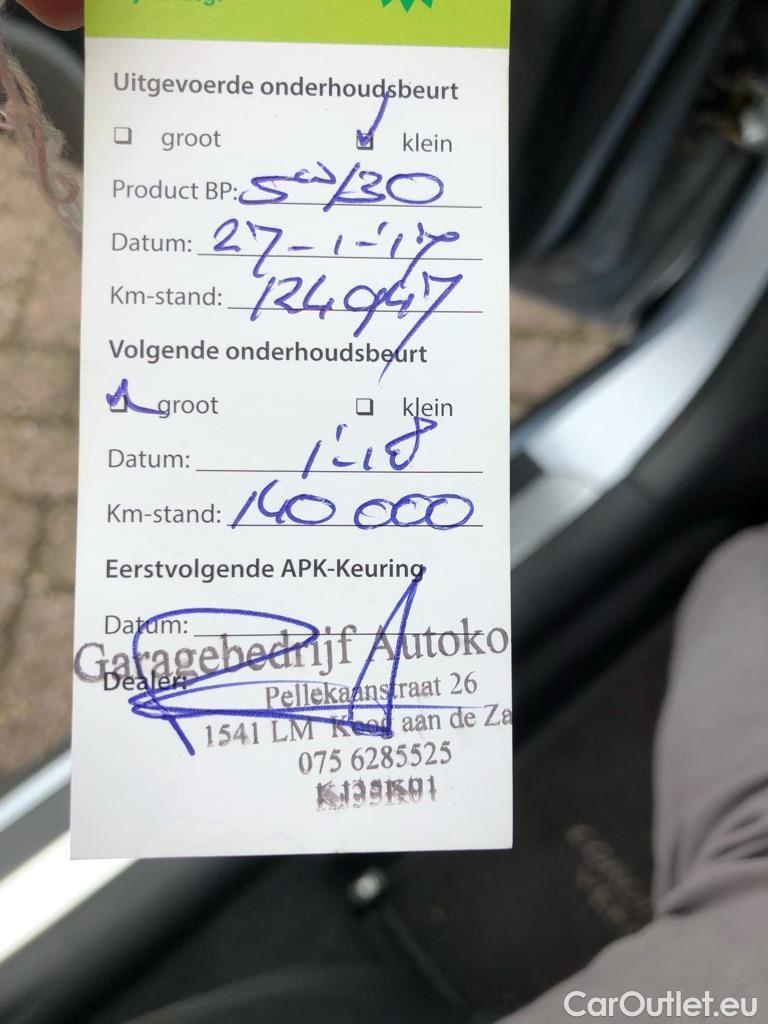 Uitgevoerde onderhoudsbeurt
groot klein
Product BP: 5W/30
Datum: 27-1-'17
Km-stand: 124947
Volgende onderhoudsbeurt
groot klein
Datum: 1-'18
Km-stand: 140 000
Eerstvolgende APK-Keuring
Datum:
Garagebedrijf Autoko
Dealer:
Pellekaanstraat 26
1541 LM Koog aan de Za
075 6285525
CarOutlet.eu